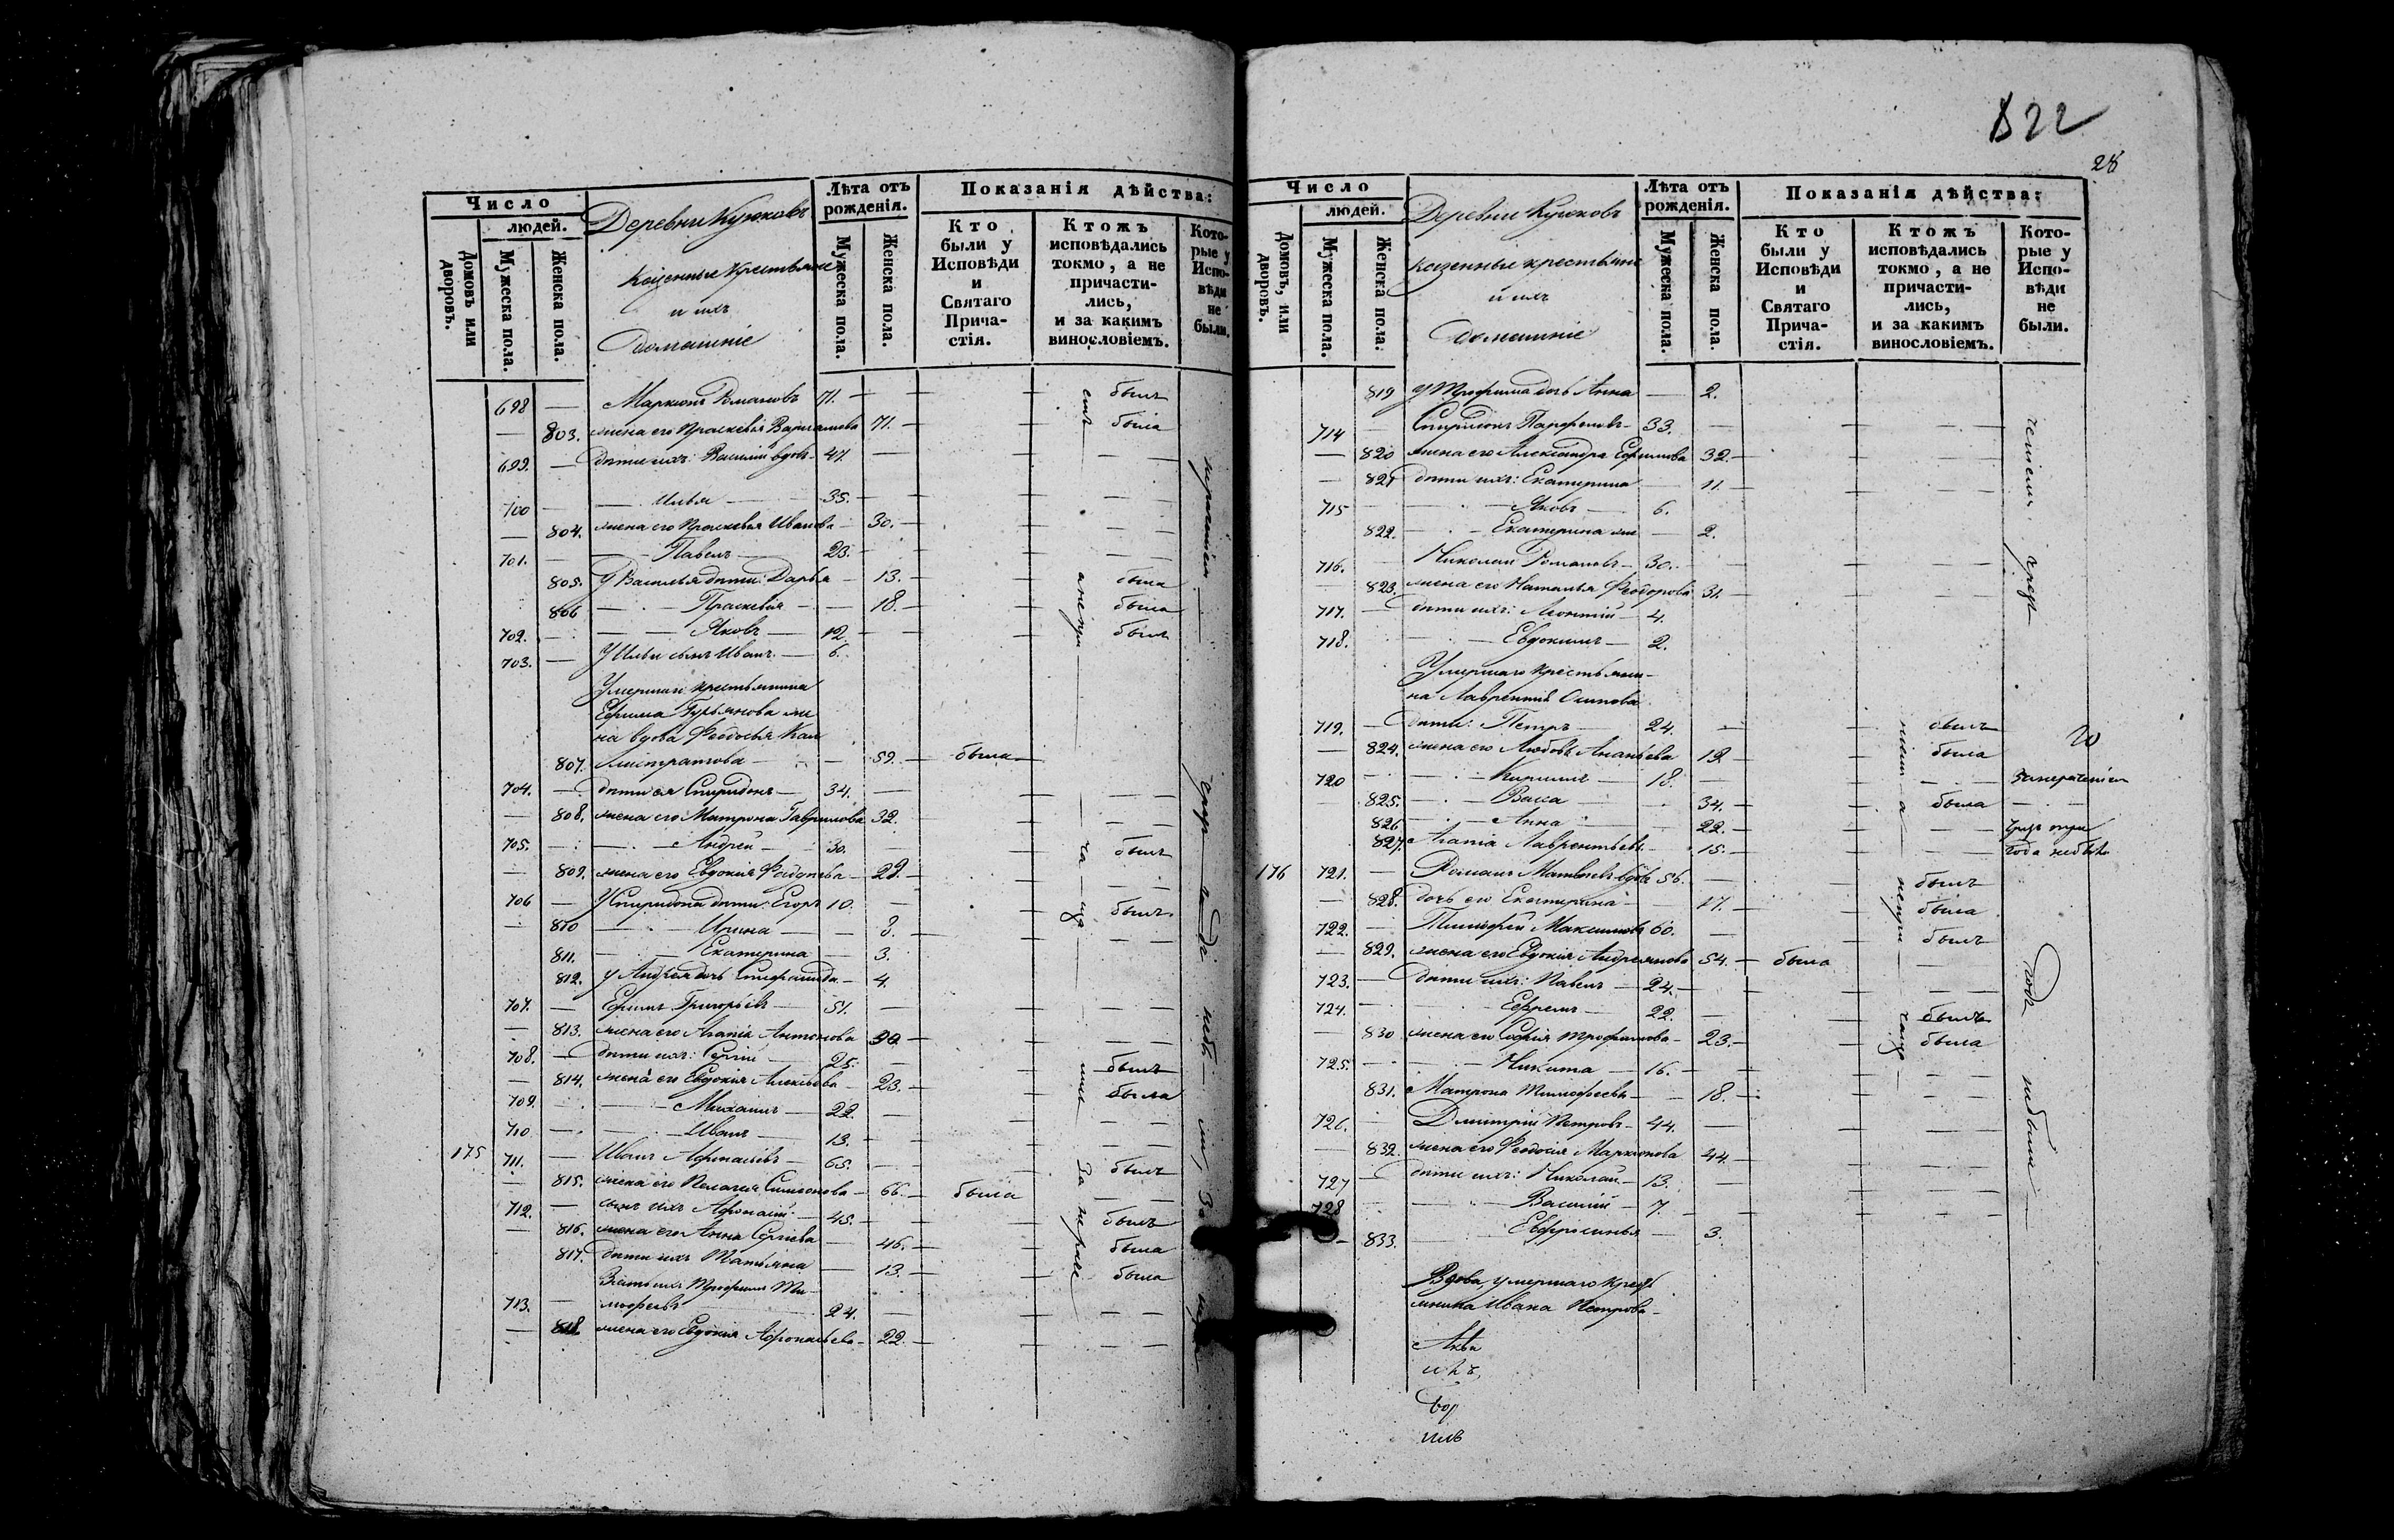 Число
людей.
Домовъ или дворовъ.
Мужеска пола.
Женска пола.
Деревни Кужковъ
Казенные крестьяне
и ихъ
домашніе
Лѣта отъ рожденія.
Мужеска пола.
Женска пола.
Показанія дѣйства:
Кто были у Исповѣди и Святаго Причастія.
Ктожъ исповѣдались токмо, а не причастились, и за какимъ винословіемъ.
Которые у Исповѣди не были.
698 — Маркіонъ Романовъ 71. — — былъ
— 803. жена его Праскевія Варламова 71. — — была
699. — дѣти ихъ: Василій вдовъ — 47. — — —
700 — Илья — 35. — — —
— 804. жена его Праскевья Иванова — 30. — — —
701. — Павелъ — 23. — — —
805. У Василья дѣти: Дарья — 13. — — была
806 — Праскевія — 18. — — была
702. — Яковъ — 12. — — былъ
703. — У Ильи сынъ Иванъ — 6.
Умершаго крестьянина
Ефима Гурьянова же
на вдова Феодосья Кал
807. листратова — 59. — была
704. — дѣти ея Спиридонъ — 34. — — —
— 808. жена его Матрона Гаврилова 32. — — —
705. — Андрей — 30. — — былъ
— 809. жена его Евдокія — 29. — — —
706 — У Спиридона дѣти: Егоръ 10. — — былъ
810 — Ирина — 8. — — —
811. — Екатерина — 3.
812. У Андрея дочь — 4.
707. — Ефимъ Григорьевъ — 51. — — —
— 813. жена его Агапія Антонова 50. — — —
708. — дѣти ихъ: Сергій — 25. — — былъ
— 814. жена его Евдокія Алексѣева — 23. — — была
709. — Михаилъ — 22. — — —
710 — Иванъ — 13. — — —
175 711. — Иванъ Афонасьевъ — 65. — — былъ
— 815. жена его Пелагея Симеонова — 66. — была — —
712. — сынъ ихъ Афонасій — 45. — — былъ
— 816. жена его Анна Сергіева — 46. — — была
817. дѣти ихъ Татьяна — 13. — — была
Зять ихъ Трофимъ Ти-
713. — мофеевъ — 24. — — —
— 818. жена его Евдокия Афонасьева — 22. — — —
822
28
Число
людей.
Домовъ, или дворовъ.
Мужеска пола.
Женска пола.
Деревни Кужковъ
казенные крестьяне
и ихъ
домашніе
Лѣта отъ рожденія.
Мужеска пола.
Женска пола.
Показанія дѣйства:
Кто были у Исповѣди и Святаго Причастія.
Ктожъ исповѣдались токмо, а не причастились, и за какимъ винословіемъ.
Которые у Исповѣди не были.
819 У Трофима дочь Анна — 2.
714 — Спиридонъ Парфеновъ — 33. — — —
— 820 жена его Александра Ефимова 32. — — —
— 821 дѣти ихъ: Екатерина — 11. — — —
715 — Яковъ — 6.
822. — Екатерина — 2.
716. — Николай Романовъ — 30. — — —
— 823. жена его Наталья Феодорова 31. — — —
717. — дѣти ихъ: Леонтій — 4.
718. — Евдокимъ — 2.
Умершаго крестьяни-
на Лаврентія Осипова
719. — дѣти: Петръ — 24. — — былъ
— 824. жена его Любовь Ананьева 19. — — была
720 — Кирилъ — 18. — — —
825. — Васса — 34. — — была
826 — Анна — 22. — — —
827. Агапіа Лаврентьева — 15. — — —
176 721. — Романъ Матвеевъ вдовъ 56. — — былъ
— 828. дочь его Екатерина — 17. — — была
722. — Тимофей Максимовъ 60. — — былъ
— 829. жена его Евдокія Андреянова 54. — была —
723. — дѣти ихъ: Павелъ — 24. — — —
724. — Ефремъ — 22. — — былъ
— 830 жена его Софія Трофимова — 23. — — была
725. — Никита — 16. — — —
831. Матрона Тимофеева — 18. — — —
726. — Дмитрій Петровъ — 44. — — —
— 832. жена его Феодосія Маркіонова 44. — — —
727 — дѣти ихъ: Николай — 13. — — —
728 — Василій — 7. — — —
— 833. — Евфросинья — 3.
Вдова, умершаго кресть
янина Ивана Петрова